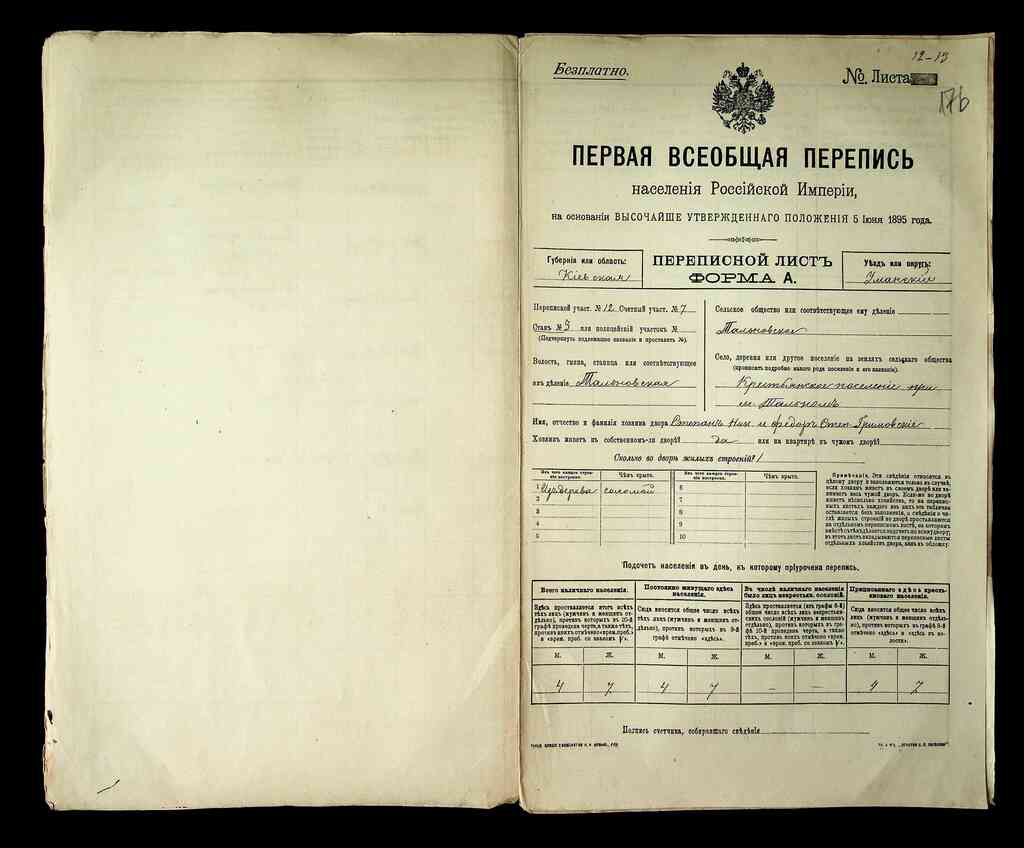 12-13
Безплатно.
№. Листа
176
ПЕРВАЯ ВСЕОБЩАЯ ПЕРЕПИСЬ
населенія Россійской Имперіи,
на основаніи ВЫСОЧАЙШЕ УТВЕРЖДЕННАГО ПОЛОЖЕНІЯ 5 Іюня 1895 года.
Губернія или область:
Кіевская
ПЕРЕПИСНОЙ ЛИСТЪ
ФОРМА А.
Уѣздъ или округъ:
Уманскій
Переписной участ. № 12 Счетный участ. № 7
Станъ № 3 или полицейскій участокъ №
(Подчеркнуть подлежащее названіе и проставить №).
Волость, гмина, станица или соотвѣтствующее
имъ дѣленіе Тальновская
Сельское общество или соотвѣтствующее ему дѣленіе
Тальновское
Село, деревня или другое поселеніе на земляхъ сельскаго общества
(прописать подробно какого рода поселеніе и его названіе).
Крестьянское поселеніе при
м. Тальномъ
Имя, отчество и фамилія хозяина двора Степанъ Ник. и Федоръ Степ. Гримовскіе
Хозяинъ живетъ въ собственномъ-ли дворѣ? да или на квартирѣ въ чужомъ дворѣ?
Сколько во дворѣ жилыхъ строеній? 1
Изъ чего каждое строеніе построено. Чѣмъ крыто. Изъ чего каждое строеніе построено. Чѣмъ крыто.
1 Изъ дерева соломой 6
2 7
3 8
4 9
5 10
Примѣчаніе. Эти свѣдѣнія относятся къ
цѣлому двору и заполняются только въ случаѣ,
если хозяинъ живетъ въ своемъ дворѣ или занимаетъ весь чужой дворъ. Если-же во дворѣ
живетъ нѣсколько хозяйствъ, то на переписныхъ листахъ каждаго изъ нихъ эта табличка
оставляется безъ заполненія, а свѣдѣнія о числѣ жилыхъ строеній во дворѣ проставляются
на отдѣльномъ переписномъ листѣ, на которомъ
Подсчетъ населенія въ день, къ которому пріурочена перепись.
Всего наличнаго населенія.
Здѣсь проставляется итогъ всѣхъ
тѣхъ лицъ (мужчинъ и женщинъ отдѣльно), противъ которыхъ въ 10-й
графѣ проведена черта, а также тѣхъ,
противъ коихъ отмѣчено «врем. проб.»
Постоянно живущаго здѣсь
населенія.
Сюда вносятся общее число всѣхъ
тѣхъ лицъ (мужчинъ и женщинъ отдѣльно), противъ которыхъ въ 9-й
графѣ отмѣчено «здѣсь».
Въ числѣ наличнаго населенія
было лицъ некрестьянск. сословій.
Здѣсь проставляется (изъ графы 4-й)
общее число лицъ некрестьянскихъ сословій (мужчинъ и женщинъ
отдѣльно), противъ которыхъ въ графѣ 10-й проведена черта, а также
тѣхъ, противъ коихъ отмѣчено «врем.
Приписаннаго здѣсь крестьянскаго населенія.
Сюда вносятся общее число всѣхъ
тѣхъ лицъ (мужчинъ и женщинъ отдѣльно), противъ которыхъ въ 8-й графѣ
отмѣчено «здѣсь» и «здѣсь въ волости».
М. Ж. М. Ж. М. Ж. М. Ж.
4 7 4 7 – – 4 7
Подпись счетчика, собиравшаго свѣдѣнія